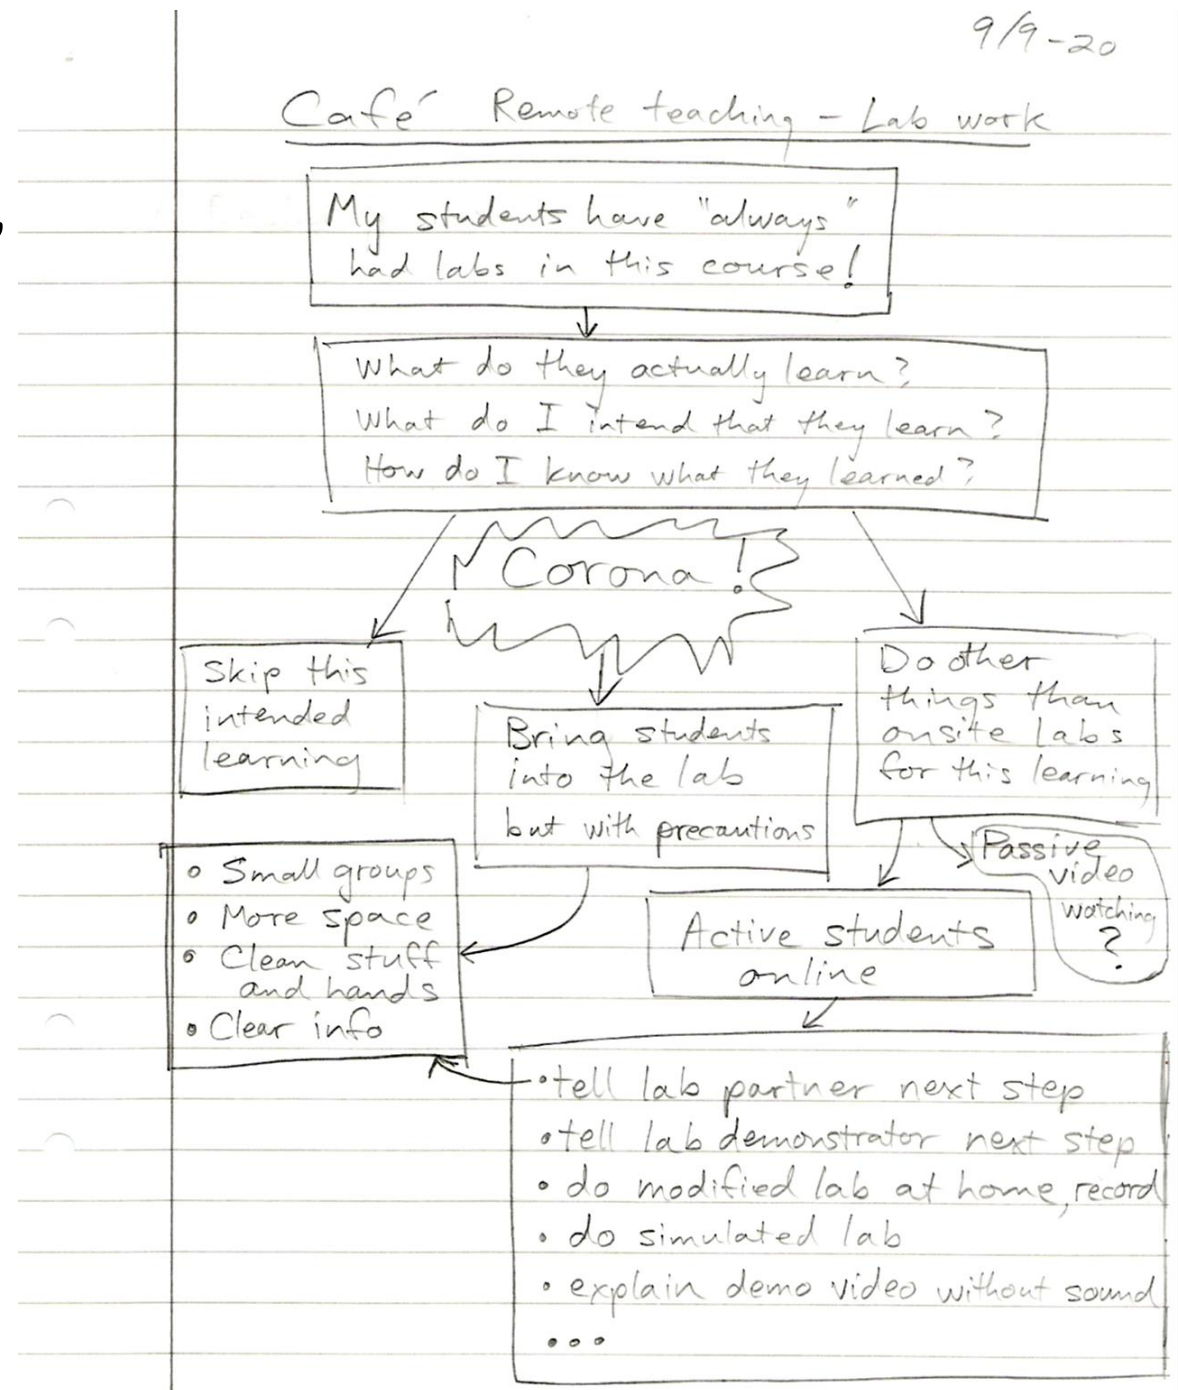 9/9-20
Café Remote teaching - Lab work
My students have "always"
had labs in this course!
What do they actually learn?
What do I intend that they learn?
How do I know what they learned?
Corona!
Skip this
intended
learning
Bring students
into the lab
but with precautions
Do other
things than
onsite labs
for this learning
• Small groups
• More space
• Clean stuff
and hands
• Clear info
Passive
video
watching
?
Active students
online
• tell lab partner next step
• tell lab demonstrator next step
• do modified lab at home, record
• do simulated lab
• explain demo video without sound
•••